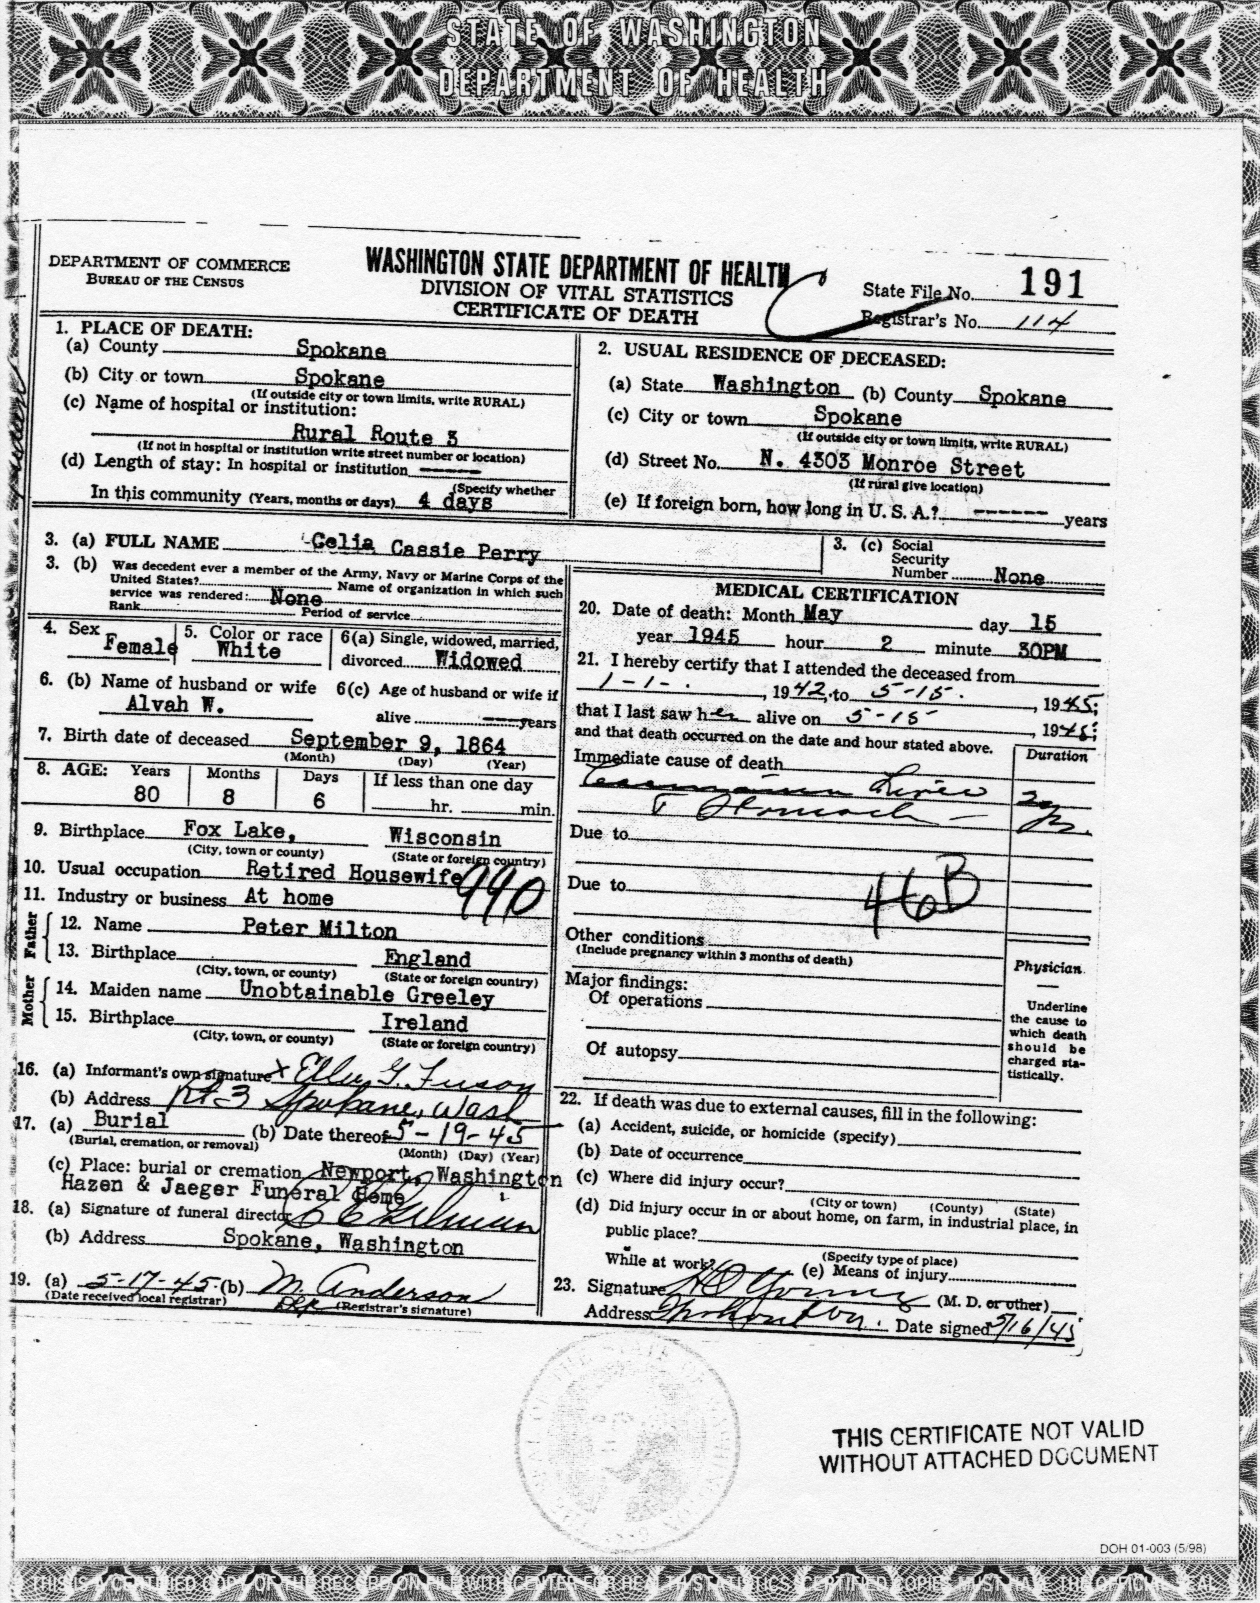 STATE OF WASHINGTON
DEPARTMENT OF HEALTH
DEPARTMENT OF COMMERCE
BUREAU OF THE CENSUS
WASHINGTON STATE DEPARTMENT OF HEALTH
DIVISION OF VITAL STATISTICS
CERTIFICATE OF DEATH
State File No. 191
Registrar's No. 114
1. PLACE OF DEATH:
(a) County Spokane
(b) City or town Spokane
(If outside city or town limits, write RURAL)
(c) Name of hospital or institution:
Rural Route 3
(If not in hospital or institution write street number or location)
(d) Length of stay: In hospital or institution -----
(Specify whether
In this community (Years, months or days) 4 days
2. USUAL RESIDENCE OF DECEASED:
(a) State Washington (b) County Spokane
(c) City or town Spokane
(If outside city or town limits, write RURAL)
(d) Street No. N. 4303 Monroe Street
(If rural give location)
(e) If foreign born, how long in U. S. A.? ------ years
3. (a) FULL NAME Celia Cassie Perry
3. (c) Social
Security
Number None
3. (b) Was decedent ever a member of the Army, Navy or Marine Corps of the
United States? Name of organization in which such
service was rendered: None
Rank Period of service
4. Sex Female
5. Color or race White
6(a) Single, widowed, married,
divorced Widowed
6. (b) Name of husband or wife
Alvah W.
6(c) Age of husband or wife if
alive ---- years
7. Birth date of deceased September 9, 1864
(Month) (Day) (Year)
8. AGE: Years Months Days If less than one day
80 8 6 hr. min.
9. Birthplace Fox Lake, Wisconsin
(City, town or county) (State or foreign country)
10. Usual occupation Retired Housewife
990
11. Industry or business At home
Father
12. Name Peter Milton
13. Birthplace England
(City, town, or county) (State or foreign country)
Mother
14. Maiden name Unobtainable Greeley
15. Birthplace Ireland
(City, town, or county) (State or foreign country)
16. (a) Informant's own signature x G. Fuson
(b) Address Rt 3 Spokane, Wash
17. (a) Burial (b) Date thereof 5-19-45
(Burial, cremation, or removal) (Month) (Day) (Year)
(c) Place: burial or cremation Newport, Washington
Hazen & Jaeger Funeral Home
18. (a) Signature of funeral director
(b) Address Spokane, Washington
19. (a) 5-17-45 (b) M. Anderson
(Date received local registrar) (Registrar's signature)
MEDICAL CERTIFICATION
20. Date of death: Month May day 15
year 1945 hour 2 minute 30PM
21. I hereby certify that I attended the deceased from
1-1- , 1942, to 5-15. , 1945;
that I last saw her alive on 5-15 , 1945;
and that death occurred on the date and hour stated above.
Duration
Immediate cause of death
Liver 2
Stomach - yrs.
Due to
Due to
46B
Other conditions
(Include pregnancy within 3 months of death)
Major findings:
Of operations
Of autopsy
Physician
Underline
the cause to
which death
should be
charged sta-
tistically.
22. If death was due to external causes, fill in the following:
(a) Accident, suicide, or homicide (specify)
(b) Date of occurrence
(c) Where did injury occur?
(City or town) (County) (State)
(d) Did injury occur in or about home, on farm, in industrial place, in
public place?
(Specify type of place)
While at work? (e) Means of injury
23. Signature (M. D. or other)
Address Date signed 5/16/45
THIS CERTIFICATE NOT VALID
WITHOUT ATTACHED DOCUMENT
DOH 01-003 (5/98)
THIS IS A CERTIFIED COPY OF THE RECORD ON FILE WITH CENTER FOR HEALTH STATISTICS. CERTIFIED COPIES MUST HAVE THE OFFICIAL SEAL.